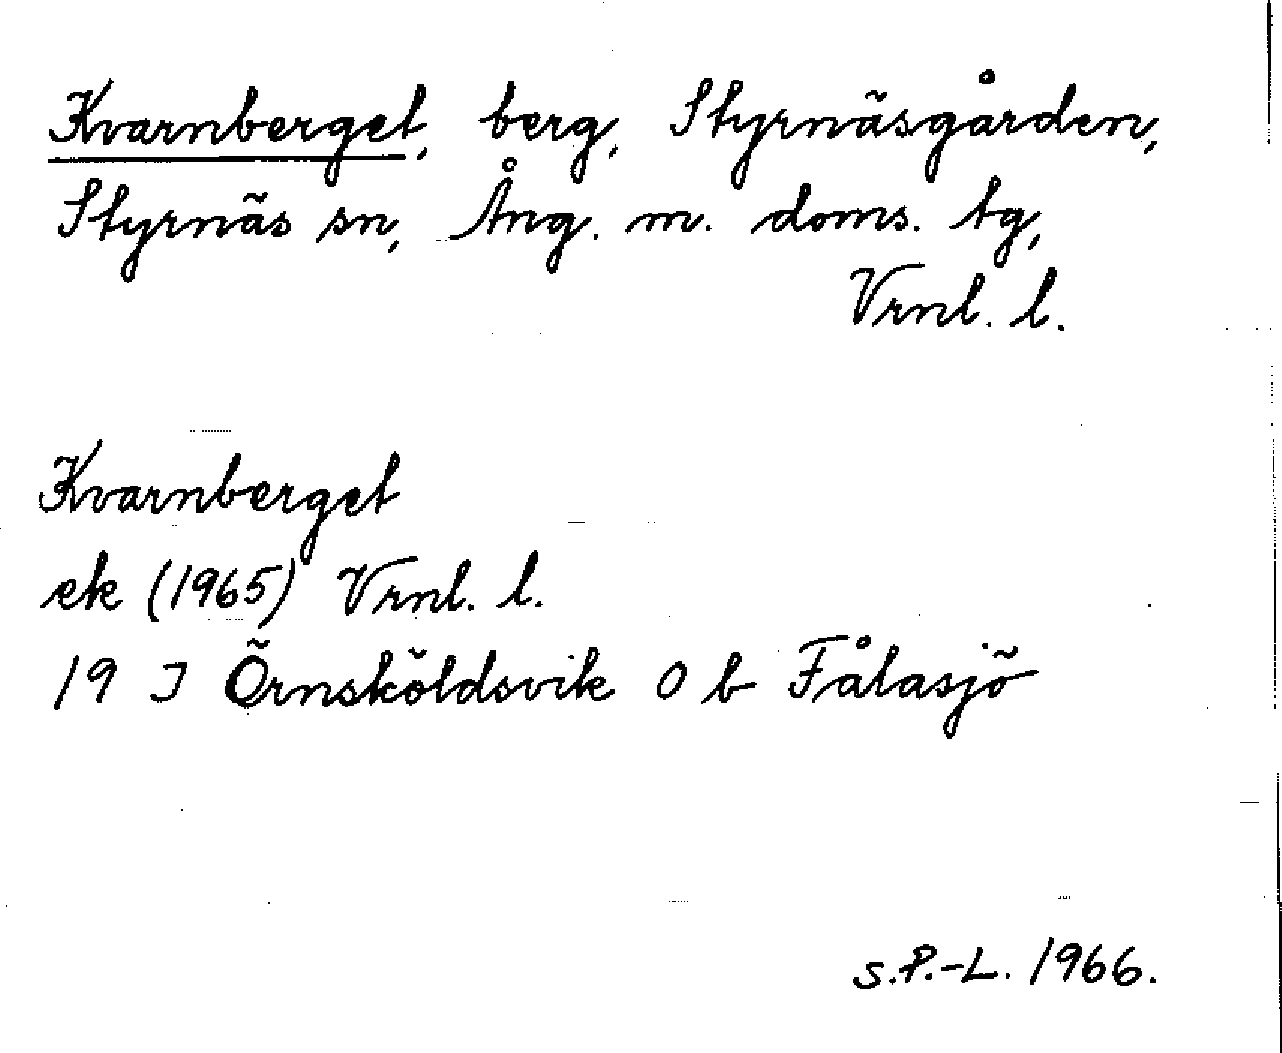 Kvarnberget, berg, Styrnäsgården,
Styrnäs sn, Ång. m. doms. tg,
Vrnl. l.
Kvarnberget
ek (1965) Vrnl. l.
19 J Örnsköldsvik O b Fålasjö
S.P.-L. 1966.